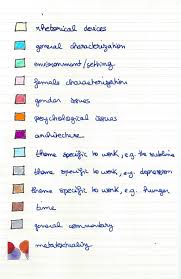 rhetorical devices
general characterization
environment/setting
female characterization
gender issues
psychological issues
architecture
theme specific to work, e.g. the sublime
theme specific to work, e.g. depression
theme specific to work, e.g. hunger
time
general commentary
metatextuality